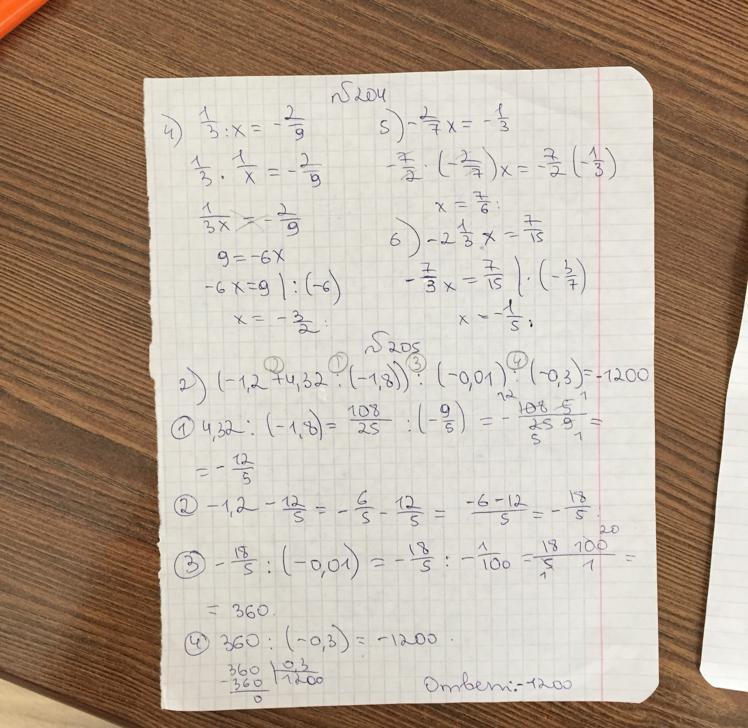 №204
4) 1/3 : x = -2/9
1/3 · 1/x = -2/9
1/3x = -2/9
9 = -6x
-6x = 9 | : (-6)
x = -3/2 ;
5) -2/7 x = -1/3
-7/2 · (-2/7) x = -7/2 (-1/3)
x = 7/6 ;
6) -2 1/3 x = 7/15
-7/3 x = 7/15 | · (-3/7)
x = -1/5 ;
№205
2) (-1,2 + 4,32 : (-1,8)) : (-0,01) : (-0,3) = -1200
② ① ③ ④
① 4,32 : (-1,8) = 108/25 : (-9/5) = - 108 5 / 25 9 =
12 1
5 1
= -12/5
② -1,2 - 12/5 = -6/5 - 12/5 = -6-12/5 = -18/5
③ -18/5 : (-0,01) = -18/5 : -1/100 = 18/5 100/1 =
20
1
= 360.
④ 360 : (-0,3) = -1200.
360 | 0,3
-360 | 1200
0
Ответ: -1200